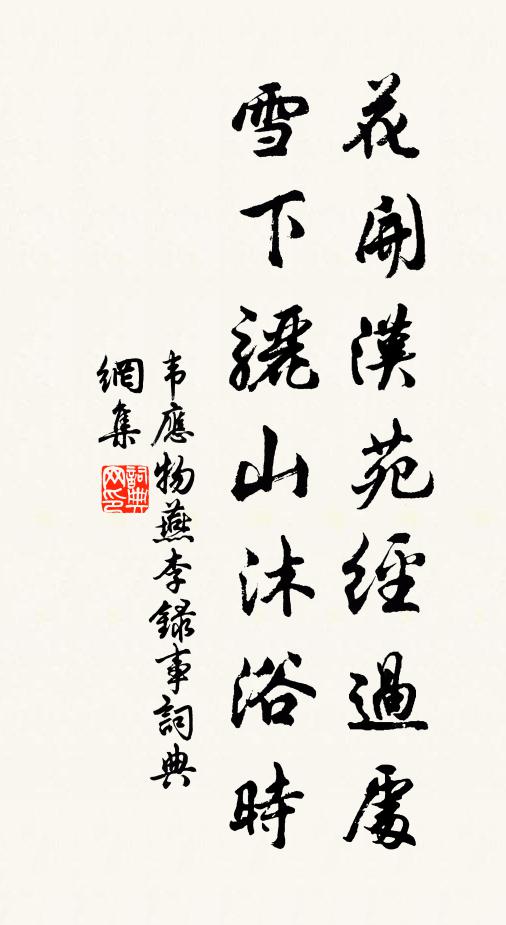 花開漢苑經過處
雪下驪山沐浴時
韦應物燕李録事詞典
網集
詞典
网印